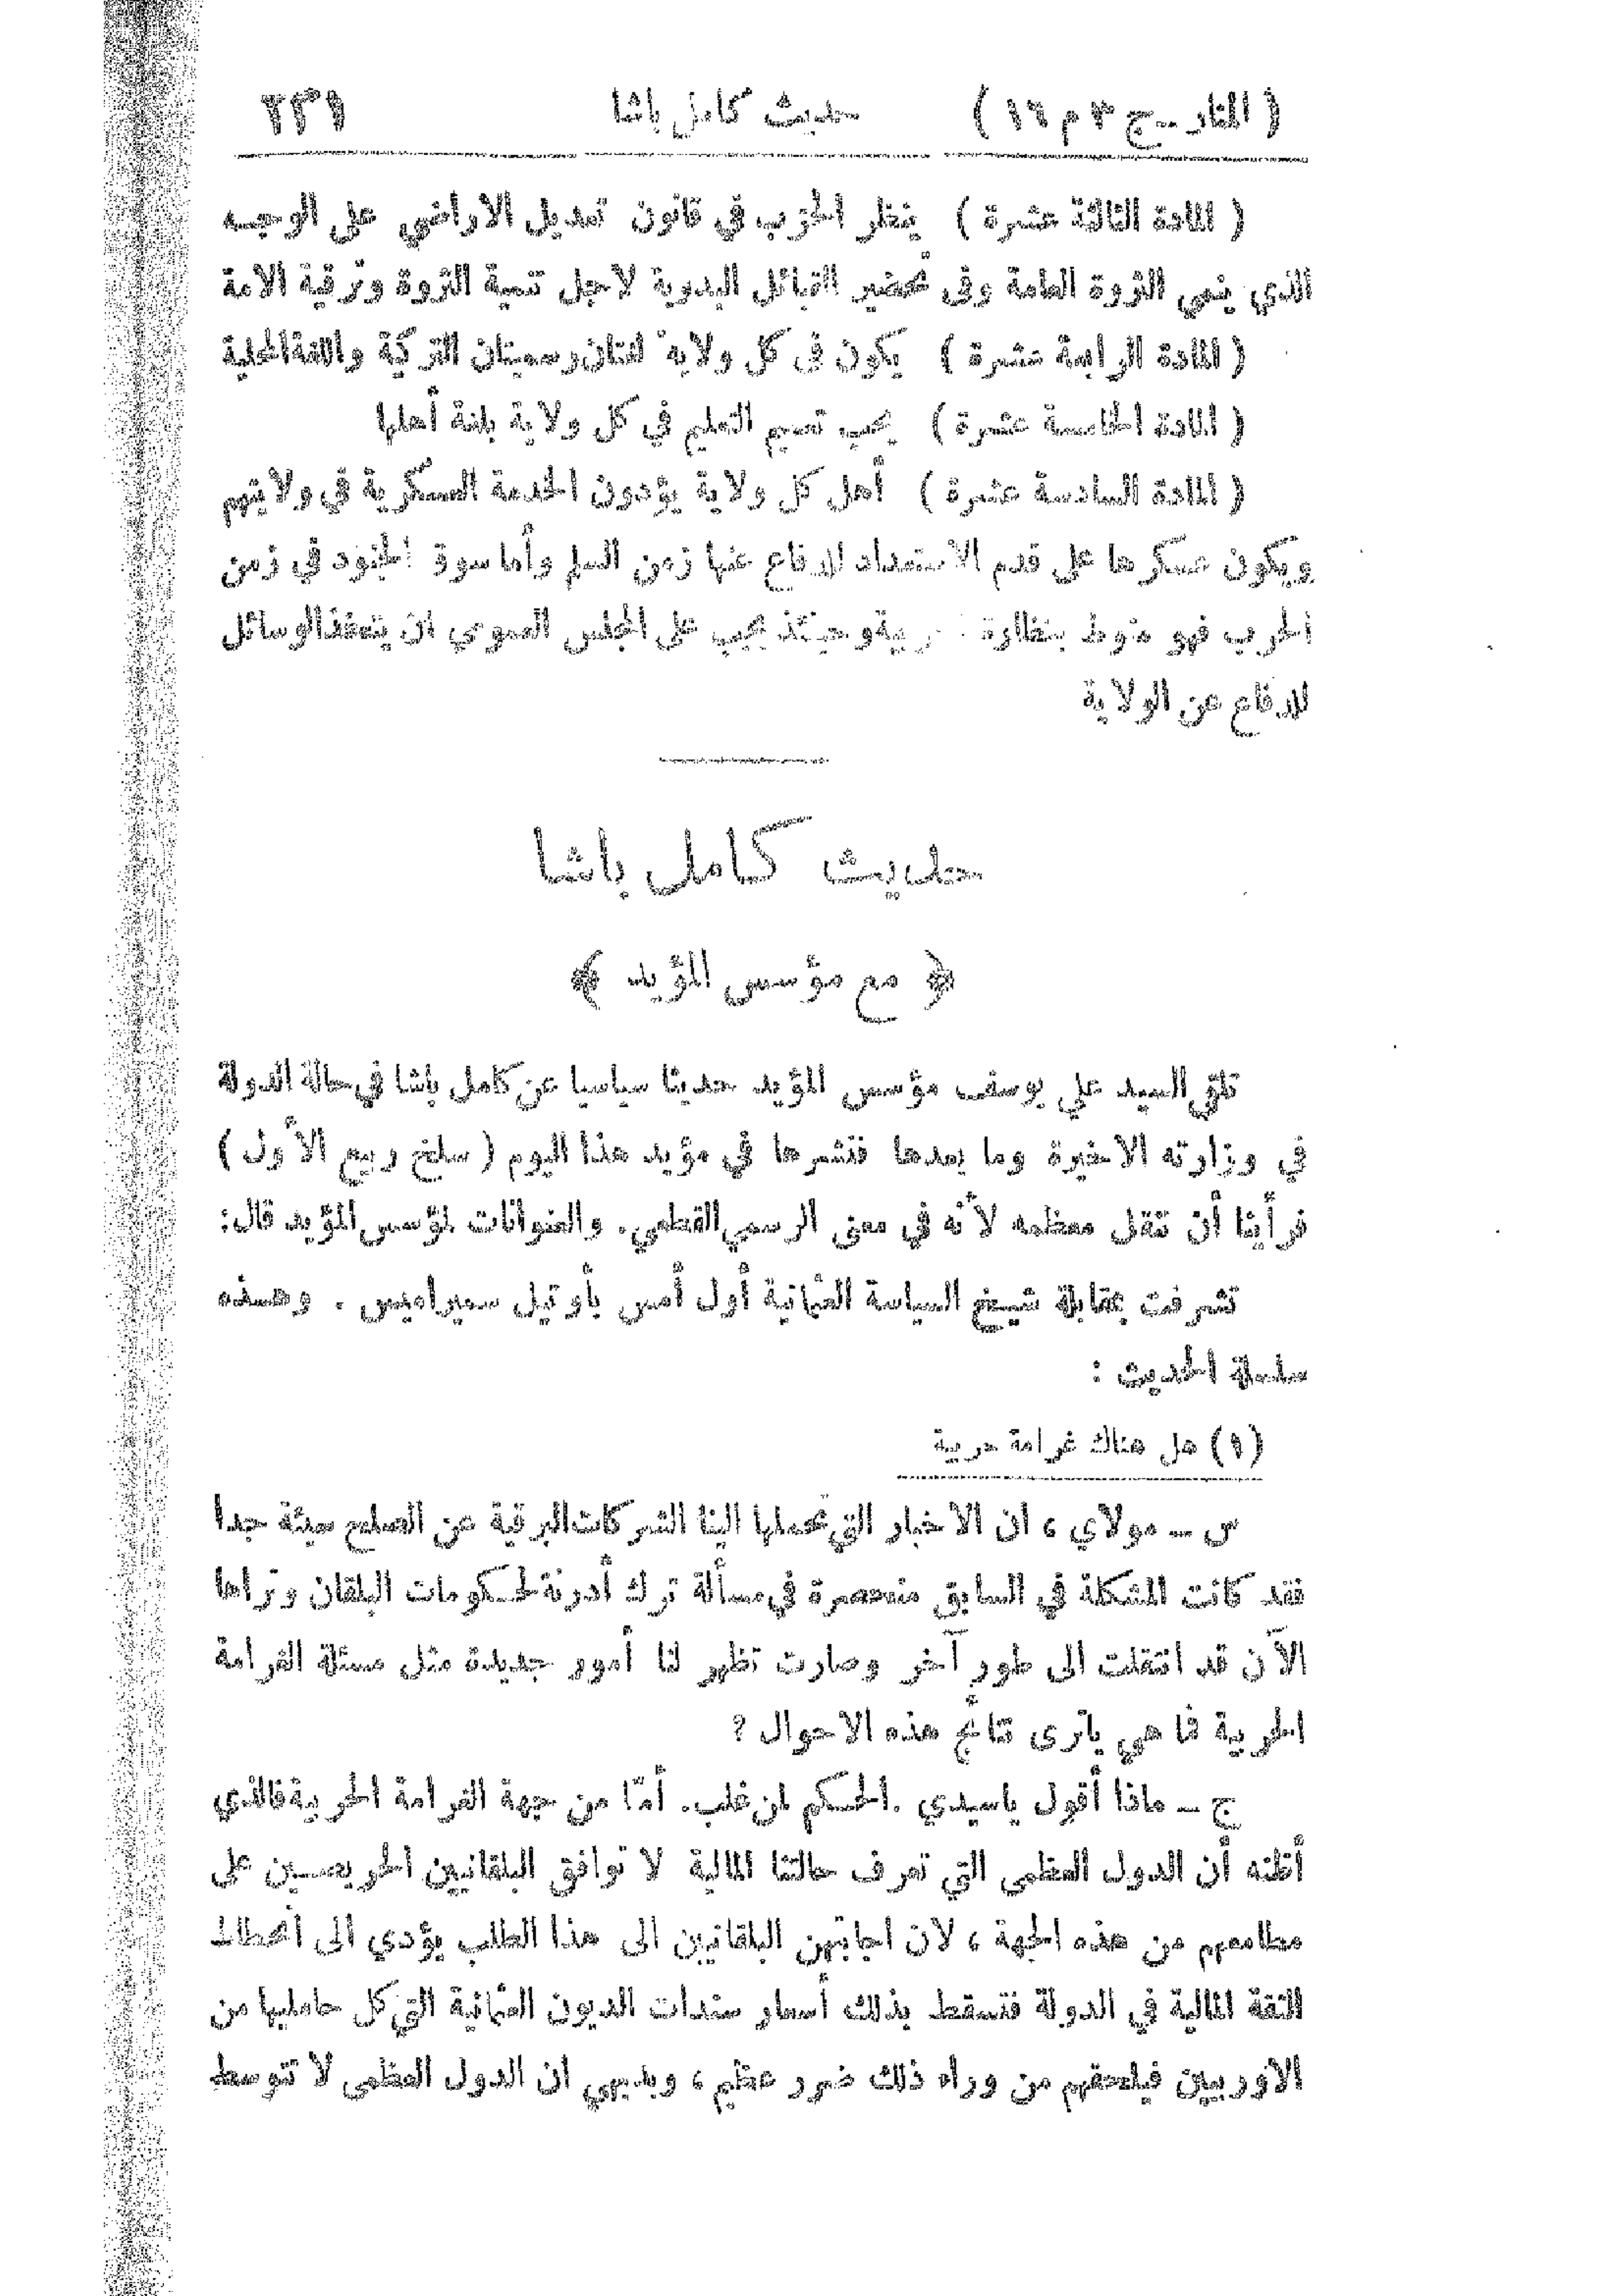 ( المنار ــ ج ٣ م ١٦ ) حديث كامل باشا ٢٣١
( المادة الثالثة عشرة ) ينظر الحزب في قانون تعديل الاراضي على الوجه
الذي ينمي الثروة العامة وفى تحضير القبائل البدوية لاجل تنمية الثروة وترقية الامة
( المادة الرابعة عشرة ) يكون فى كل ولاية لغتان رسميتان التركية واللغة المحلية
( المادة الخامسة عشرة ) يجب تعميم التعليم في كل ولاية بلغة أهلها
( المادة السادسة عشرة ) أهل كل ولاية يؤدون الخدمة العسكرية في ولايتهم
ويكون عسكرها على قدم الاستعداد للدفاع عنها زمن السلم وأما سوق الجنود في زمن
الحرب فهو منوط بنظارة وحينئذ يجب على المجلس العمومي ان يتخذ الوسائل
للدفاع عن الولاية
حديث كامل باشا
﴿ مع مؤسس المؤيد ﴾
تلقى السيد علي يوسف مؤسس المؤيد حديثا سياسيا عن كامل باشا في حالة الدولة
في وزارته الاخيرة وما بعدها فنشرها في مؤيد هذا اليوم ( سلخ ربيع الأول )
فرأينا أن ننقل معظمه لأنه في معنى الرسمي القطعي. والعنوانات لمؤسس المؤيد قال:
تشرفت بمقابلة شيخ السياسة العثمانية أول أمس بأوتيل سميراميس . وهذه
سلسلة الحديث :
(١) هل هناك غرامة حربية
س ــ مولاي ، ان الاخبار التي تحملها الينا الشركات البرقية عن الصلح سيئة جدا
فقد كانت المشكلة في السابق منحصرة في مسألة ترك أدرنة لحكومات البلقان ونراها
الآن قد انتقلت الى طور آخر وصارت تظهر لنا أمور جديدة مثل مسئلة الغرامة
الحربية فما هي ياترى نتائج هذه الاحوال ؟
ج ــ ماذا أقول ياسيدي .الحكم لمن غلب. أمّا من جهة الغرامة الحربية فالذي
أظنه أن الدول العظمى التي تعرف حالتنا المالية لا توافق البلقانيين الحريصين على
مطامعهم من هذه الجهة ، لان اجابتهن البلقانيين الى هذا الطلب يؤدي الى انحطاط
الثقة المالية في الدولة فتسقط بذلك أسعار سندات الديون العثمانية التي كل حامليها من
الاوربيين فيلحقهم من وراء ذلك ضرر عظيم ، وبديهي ان الدول العظمى لا تتوسط